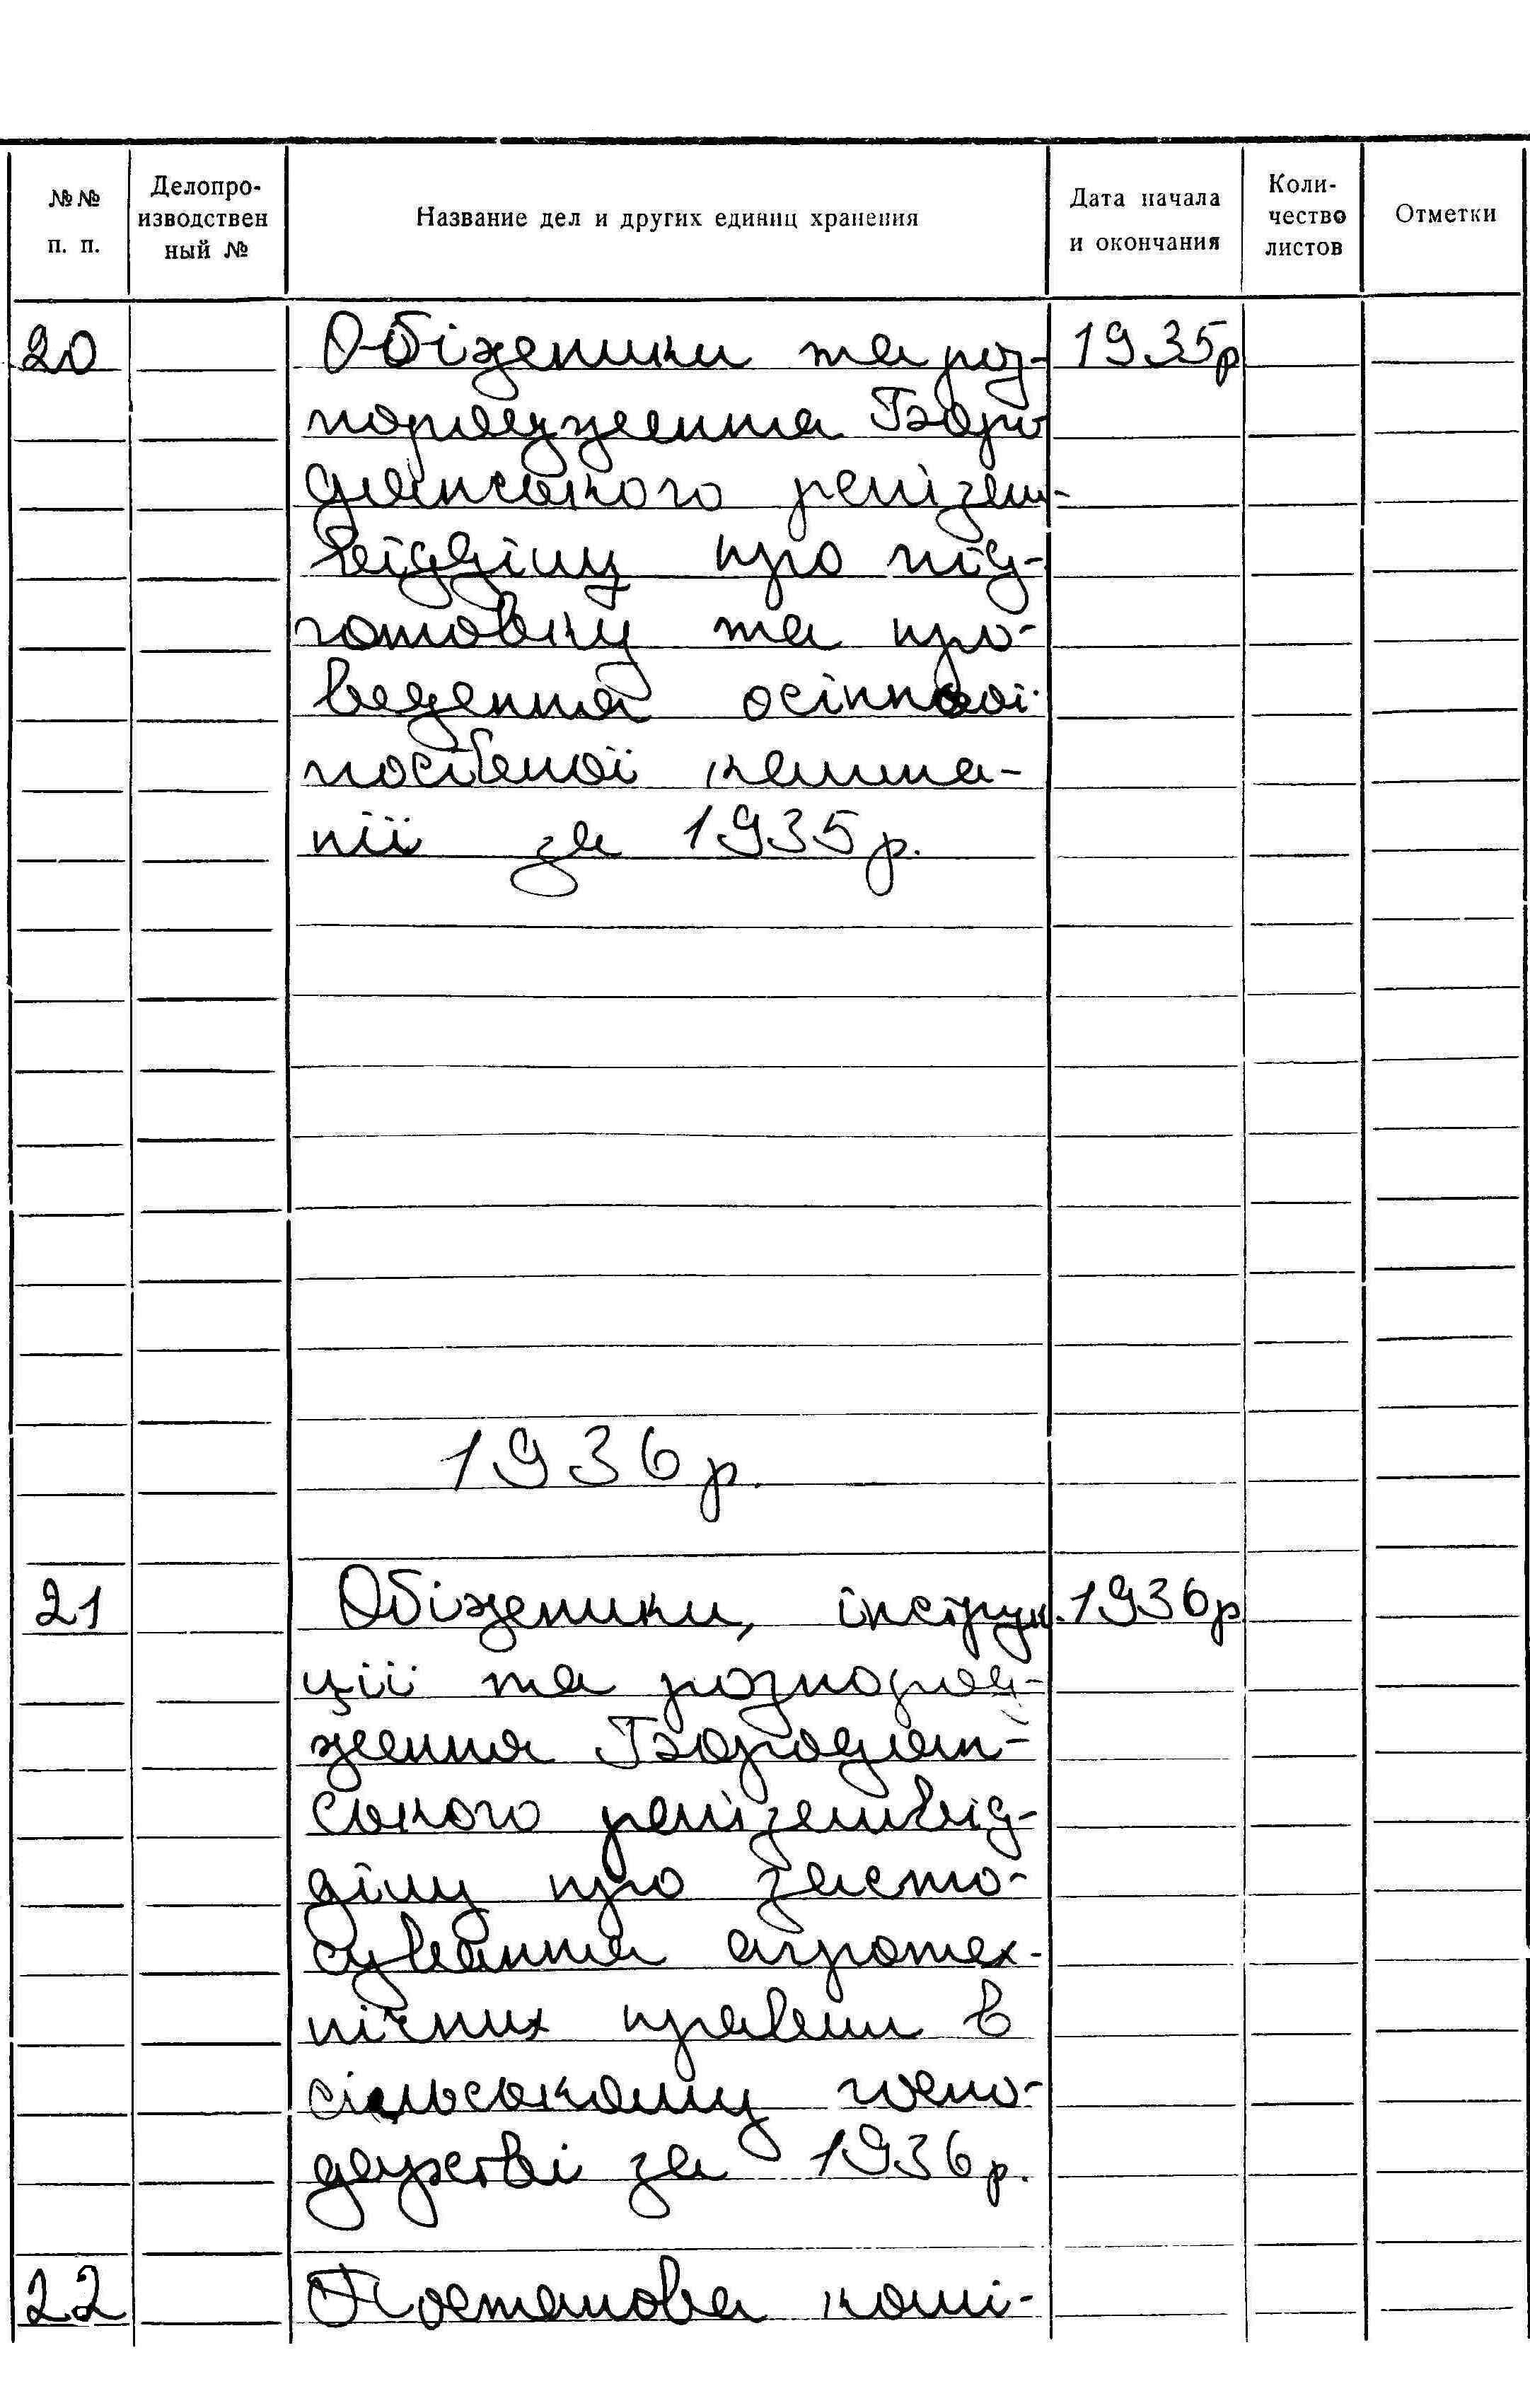 №№ п. п.
Делопро-
изводствен
ный №
Название дел и других единиц хранения
Дата начала
и окончания
Коли-
чество
листов
Отметки
20 Обіжники та роз- 1935р
порядження Боро
дянського райзем-
відділу про під-
готовку та про-
ведення осінньої
посівної кампа-
нії за 1935р.
1936р.
21 Обіжники, інструк 1936р
ції та розпоряд-
ження Бородян-
ського райземвід-
ділу про засто-
сування агротех-
нічних правил в
сільському госпо-
дарстві за 1936р.
22 Постанова комі-